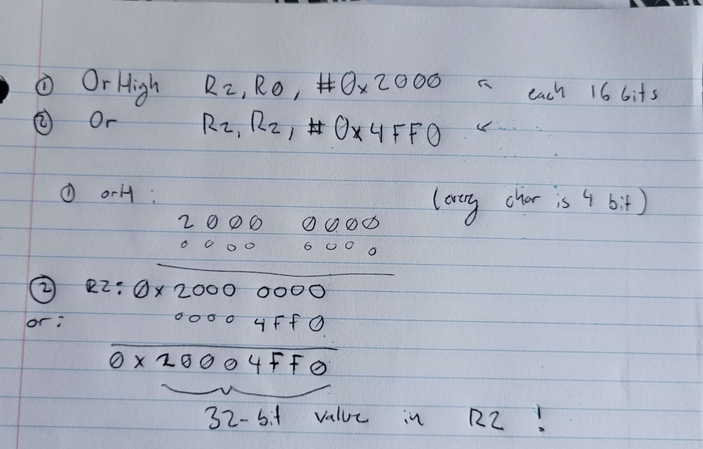 ① OrHigh R2, R0, #0x2000 ↖ each 16 bits
② Or R2, R2, #0x4FF0 ↙
① orH : (every char is 4 bit)
2000 0000
0000 0000
② R2: 0x2000 0000
or: 0000 4FF0
0x20004FF0
32-bit value in R2 !